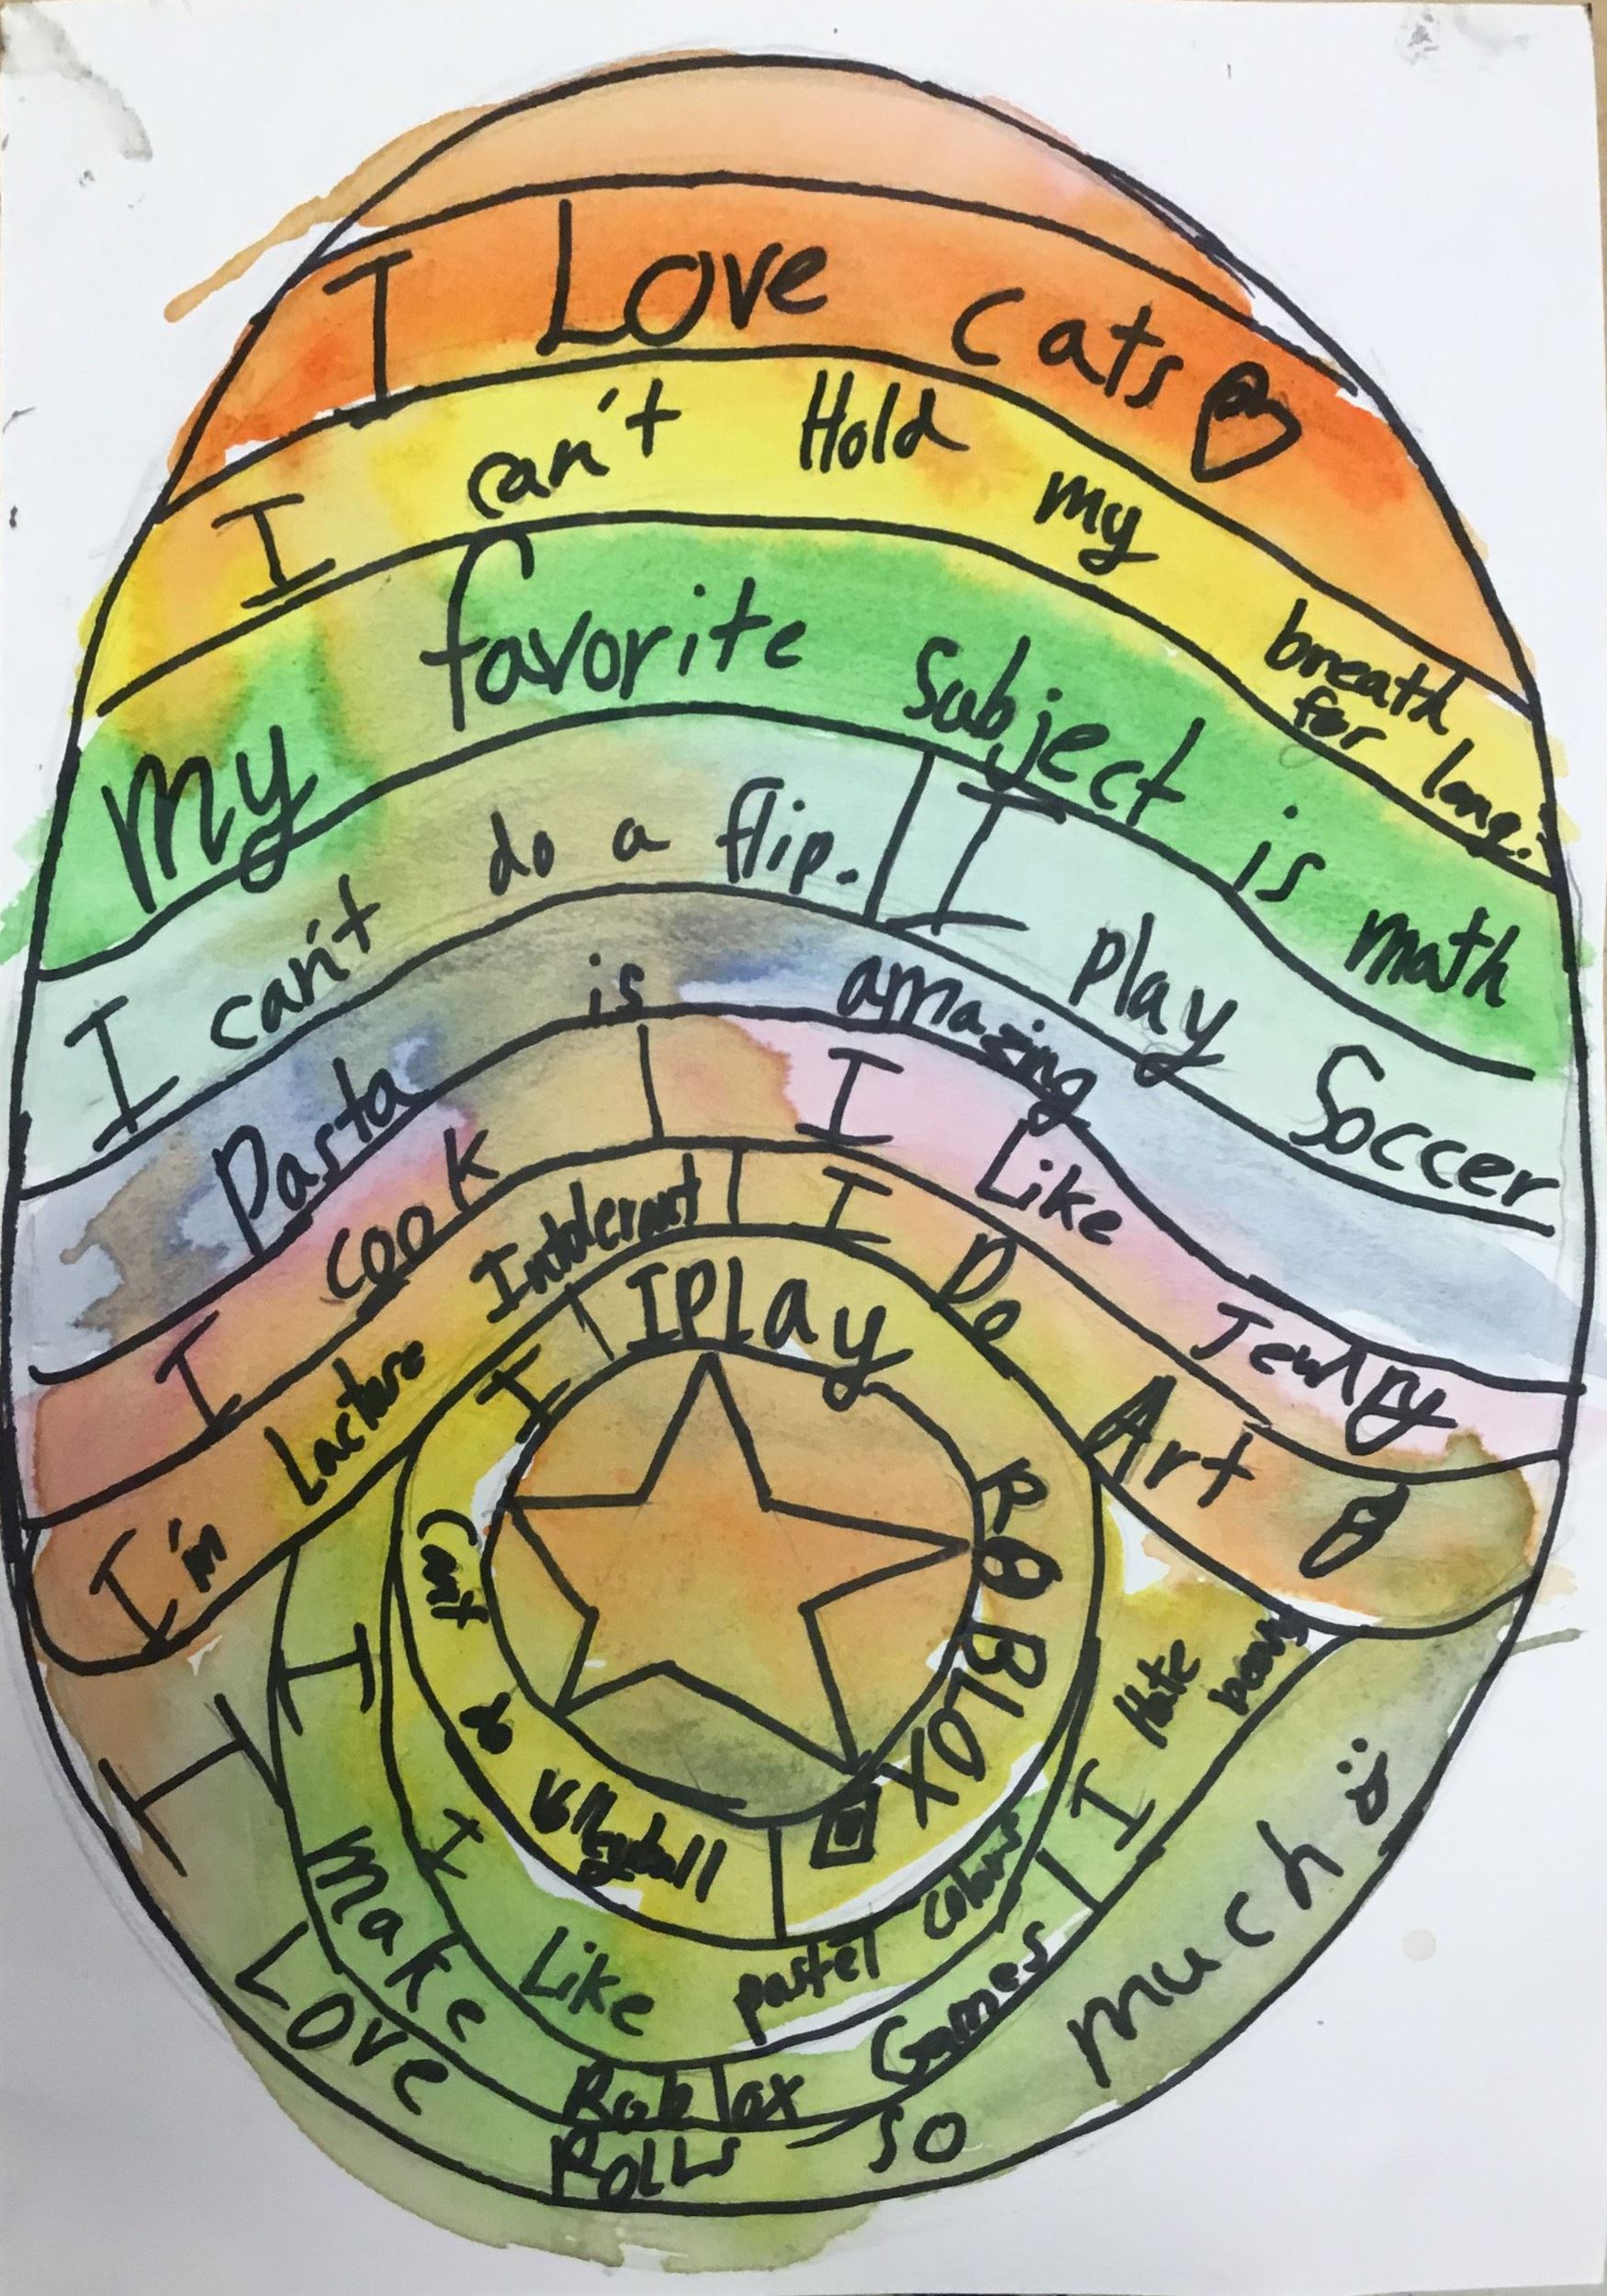 I Love cats
I can't Hold my breath for long.
My favorite Subject is math
I can't do a flip.
I play Soccer
Pasta is amazing
I cook
I Like Jewlry
I'm Lactose Intolerant
I Do Art
I PLay ROBLOX
I & Volleyball
I Hate
I Like pastel colors
I make Roblox Games
I Love ROLLS so much